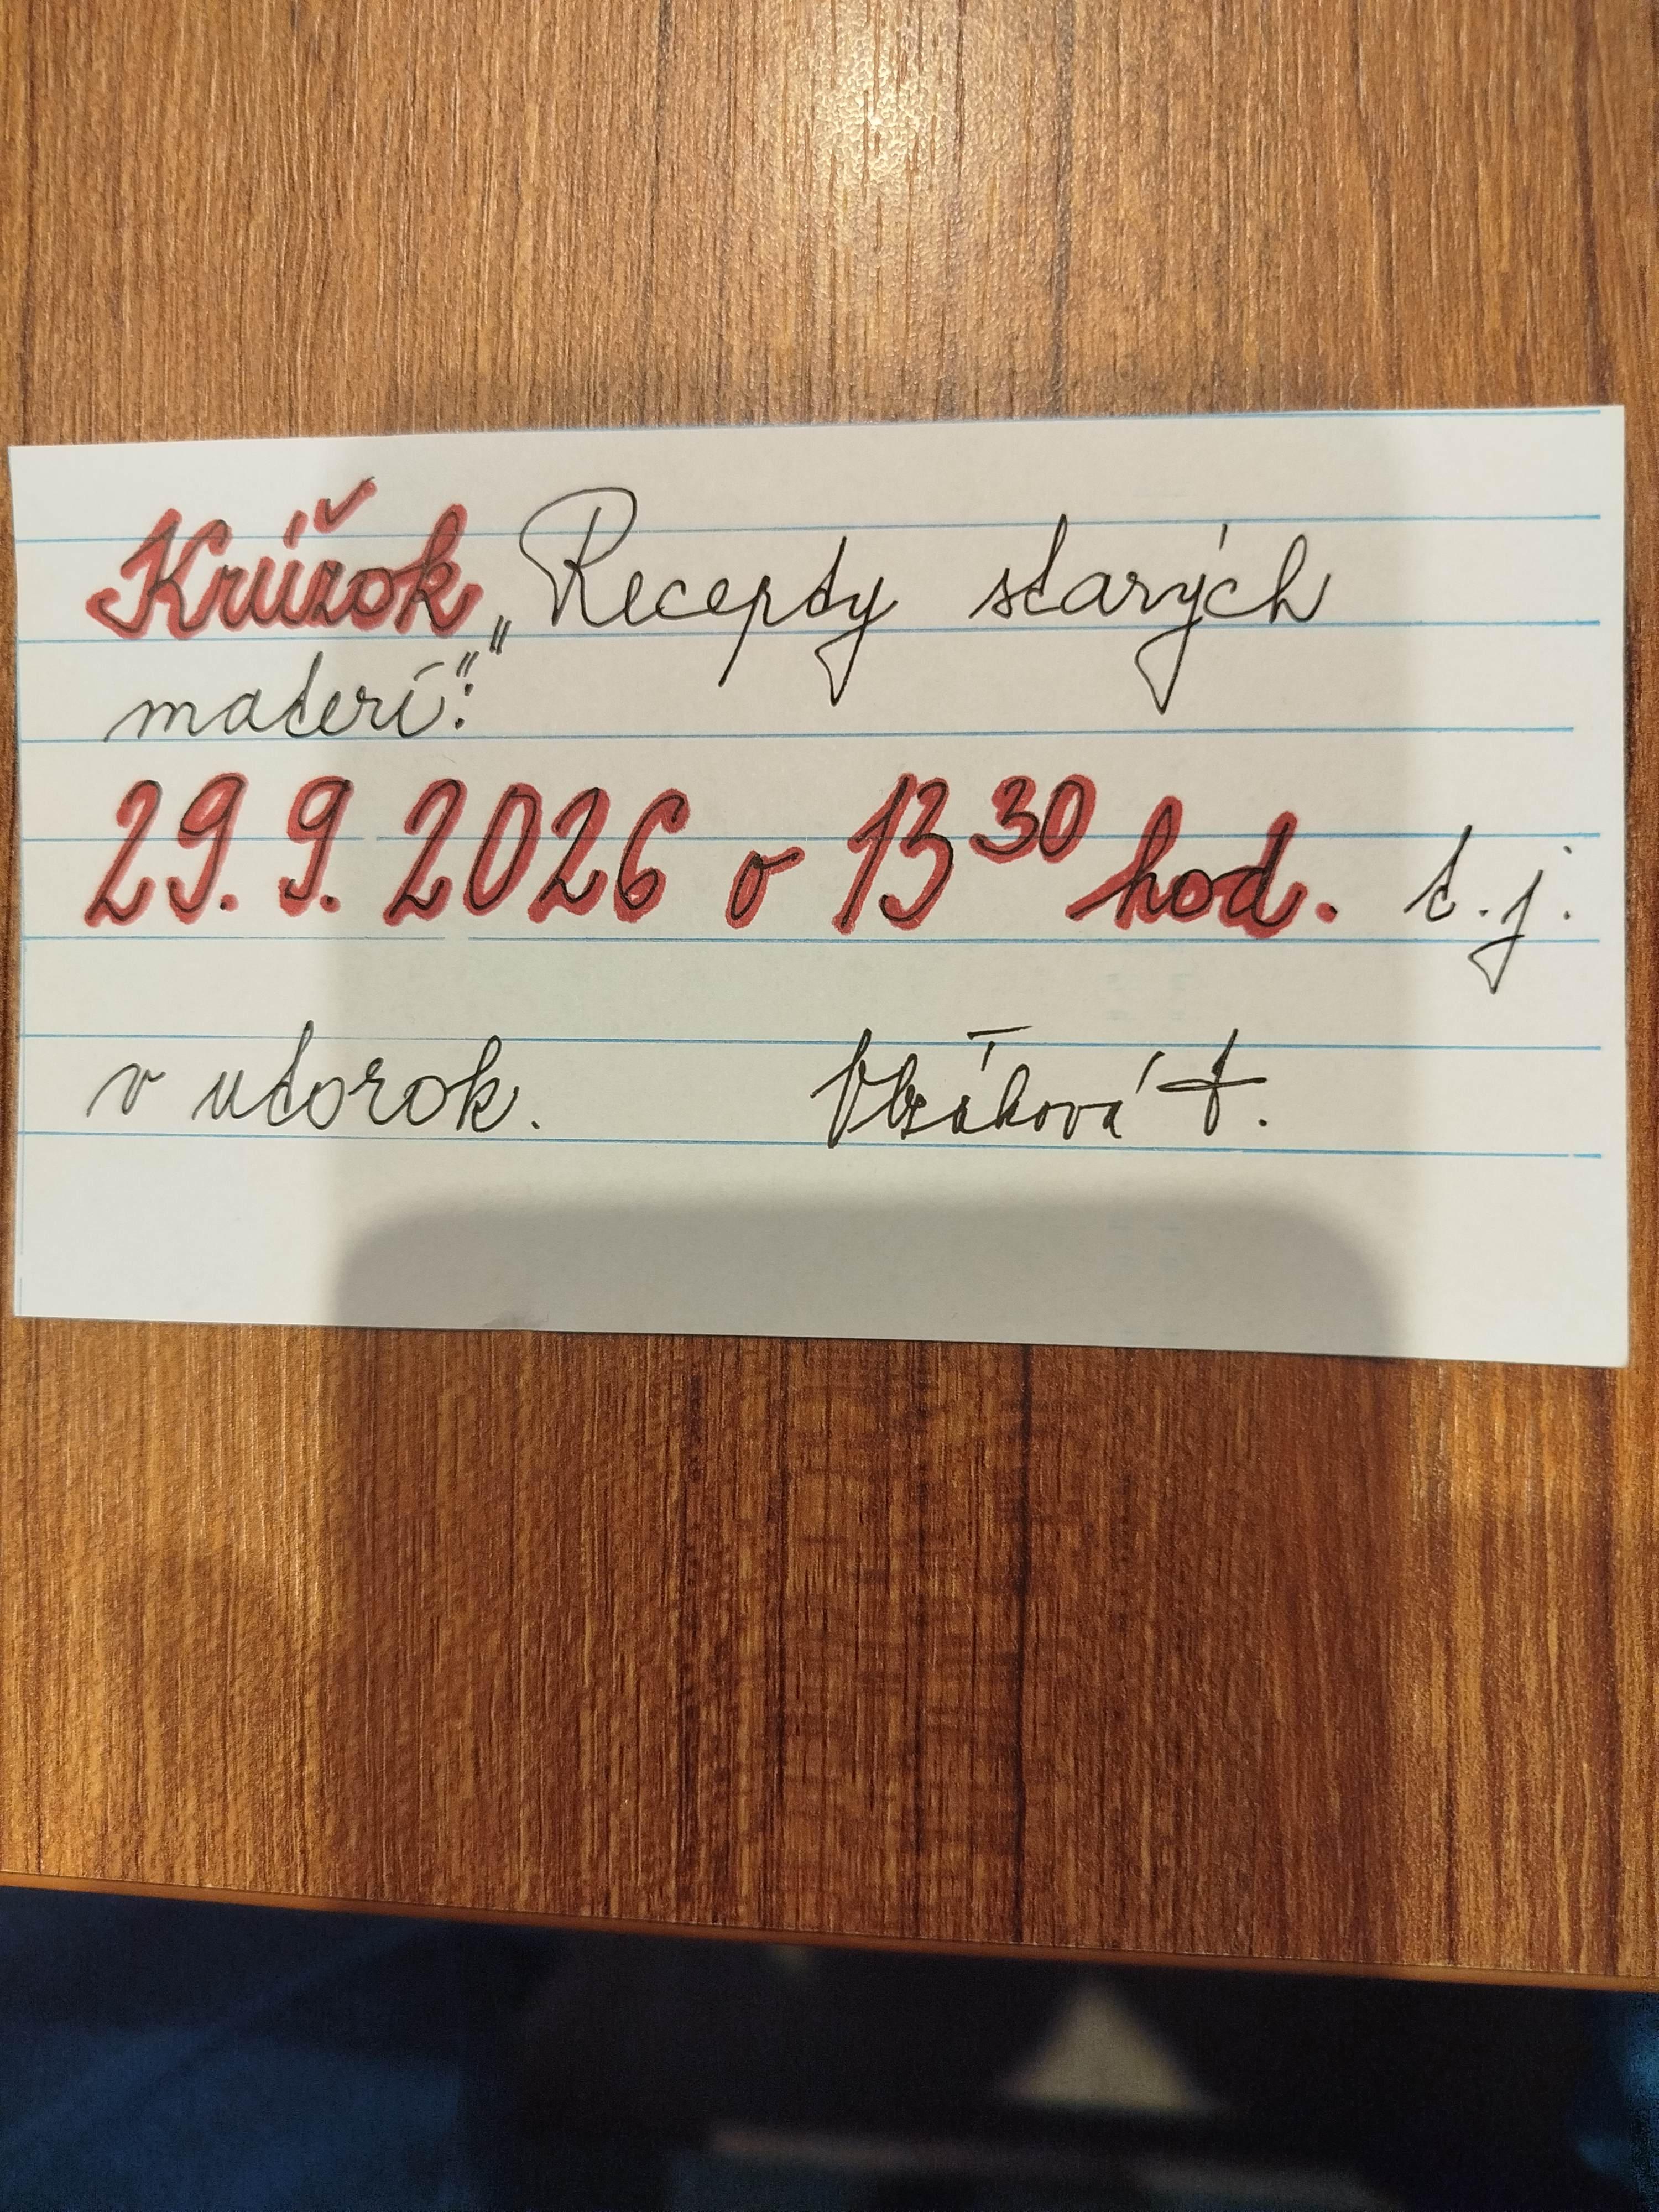 Krúžok „Recepty starých
materí“:
29. 9. 2026 o 13 30 hod. t. j.
v utorok.